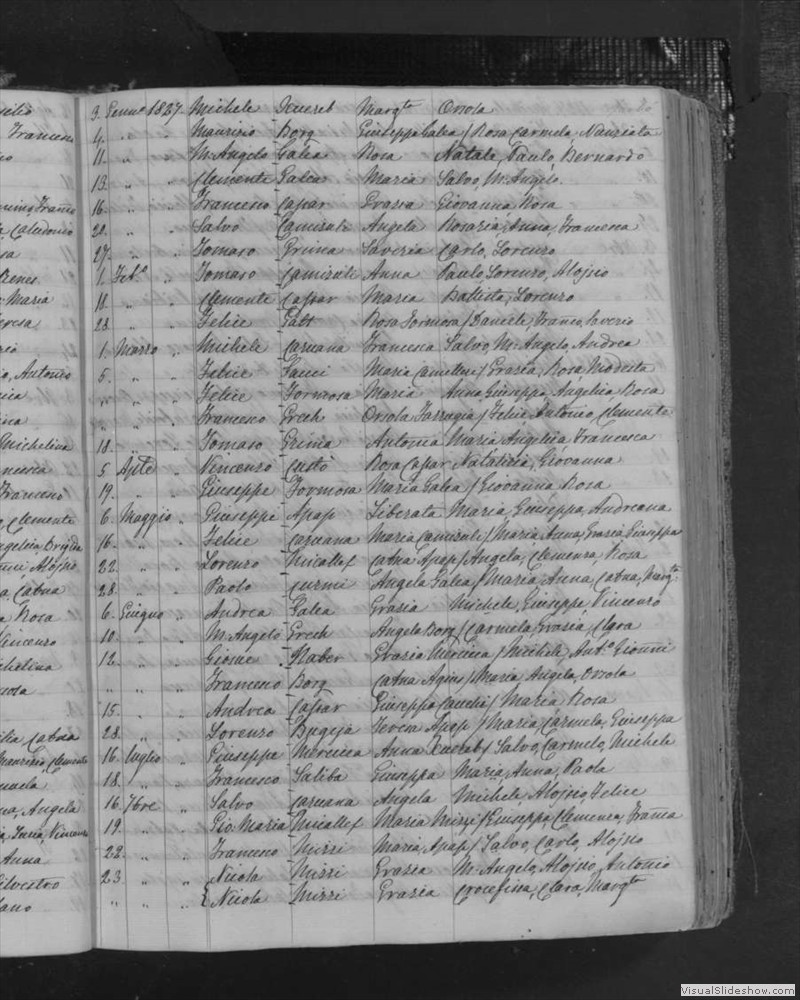 silio
Franceno
Maria
eresa
Antonio
Michelina
ncesca
Francenò
Clemente
Alojsio
Catna
Rosa
Vincenzo
Catna
Maurizio, Clemente
Angela
Lucia, Vincenzo
Anna
Silvestro
3. Genno 1827 Michele Xuereb Margta Orsola
4. " " Maurizio Borg Giuseppa Galea / Rosa Carmela Nunziata
11. " " M. Angelo Galea Rosa Natale, Paulo, Bernardo
13. " " Clemente Galea Maria Salvo, M. Angelo.
16. " " Francesco Caṡar Grazia Giovanna, Rosa
20. " " Salvo Camisuli Angela Rosaria, Anna, Francesca
27. " " Tomaso Grima Saveria Carlo, Lorenzo
1. Febo " Tomaso Camisuli Anna Paulo, Lorenzo, Alojsio
11. " " Clemente Caṡar Maria Battista, Lorenzo
23. " " Felice Gatt Rosa Formosa / Daniele, Franco, Saverio
1. Marzo " Michele Caruana Francesca Salvo, M. Angelo, Andrea
5. " " Felice Maria Camelleri / Grazia, Rosa, Modesta
" " " Felice Formosa Maria Anna, Giuseppa, Angelica, Rosa
" " " Francesco Grech Orsola Farrugia / Felice, Antonio, Clemente
18. " " Tomaso Grima Antonia Maria, Angelica, Francesca
5. Aple " Vincenzo Custò Rosa Caṡar Natalizia, Giovanna
19. " " Giuseppe Formosa Maria Galea / Giovanna Rosa
6. Maggio " Giuseppe Apap Liberata Maria, Giuseppa, Andreana
16. " " Felice Caruana Maria Camisuli / Maria, Anna, Grazia, Giuseppa
22. " " Lorenzo Micallef Catna Apap / Angela, Clemenza, Rosa
28. " " Paolo Curmi Angela Galea / Maria, Anna, Catna, Margta
6. Giugno " Andrea Galea Grazia Michele, Giuseppe, Vincenzo
10. " " M. Angelo Grech Angela Borg / Carmela, Grazia, Clara
12. " " Grazia Mercieca / Michele, Anto Gionni
" " " Francesco Borg Catna Agius / Maria, Angela, Orsola
15. " " Andrea Caṡar Giuseppa / Maria Rosa
28. " " Lorenzo Bugeja Teresa Apap / Maria, Carmela, Giuseppa
16. Luglio " Giuseppe Mercieca Anna Xuereb / Salvo, Carmelo, Michele
18. " " Francesco Saliba Giuseppa Maria, Anna, Paola
16. 7bre " Salvo Caruana Angela Michele, Alojsio, Felice
19. " " Gio: Maria Micallef Maria Mizzi / Giuseppa, Clemenza, Franca
22. " " Francesco Mizzi Maria Apap / Salvo, Carlo, Alojsio
23 " " Nicola Mizzi Grazia M. Angelo, Alojsio, Antonio
" " " { Nicola Mizzi Grazia Crocifissa, Clara, Margta
VisualSlideshow.com